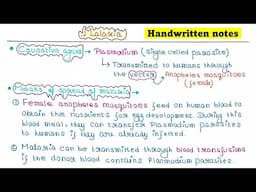 Malaria
Handwritten notes
Causative agent → Plasmodium (single celled parasite)
↳ Transmitted to humans through
the vector → Anopheles mosquitoes
(female)
Means of spread of malaria
① Female anopheles mosquitoes feed on human blood to
obtain the nutrients for egg development. During this
blood meal, they can transfer Plasmodium parasites
to humans if they are already infected.
② Malaria can be transmitted through blood transfusions
if the donor blood contains Plasmodium parasites.